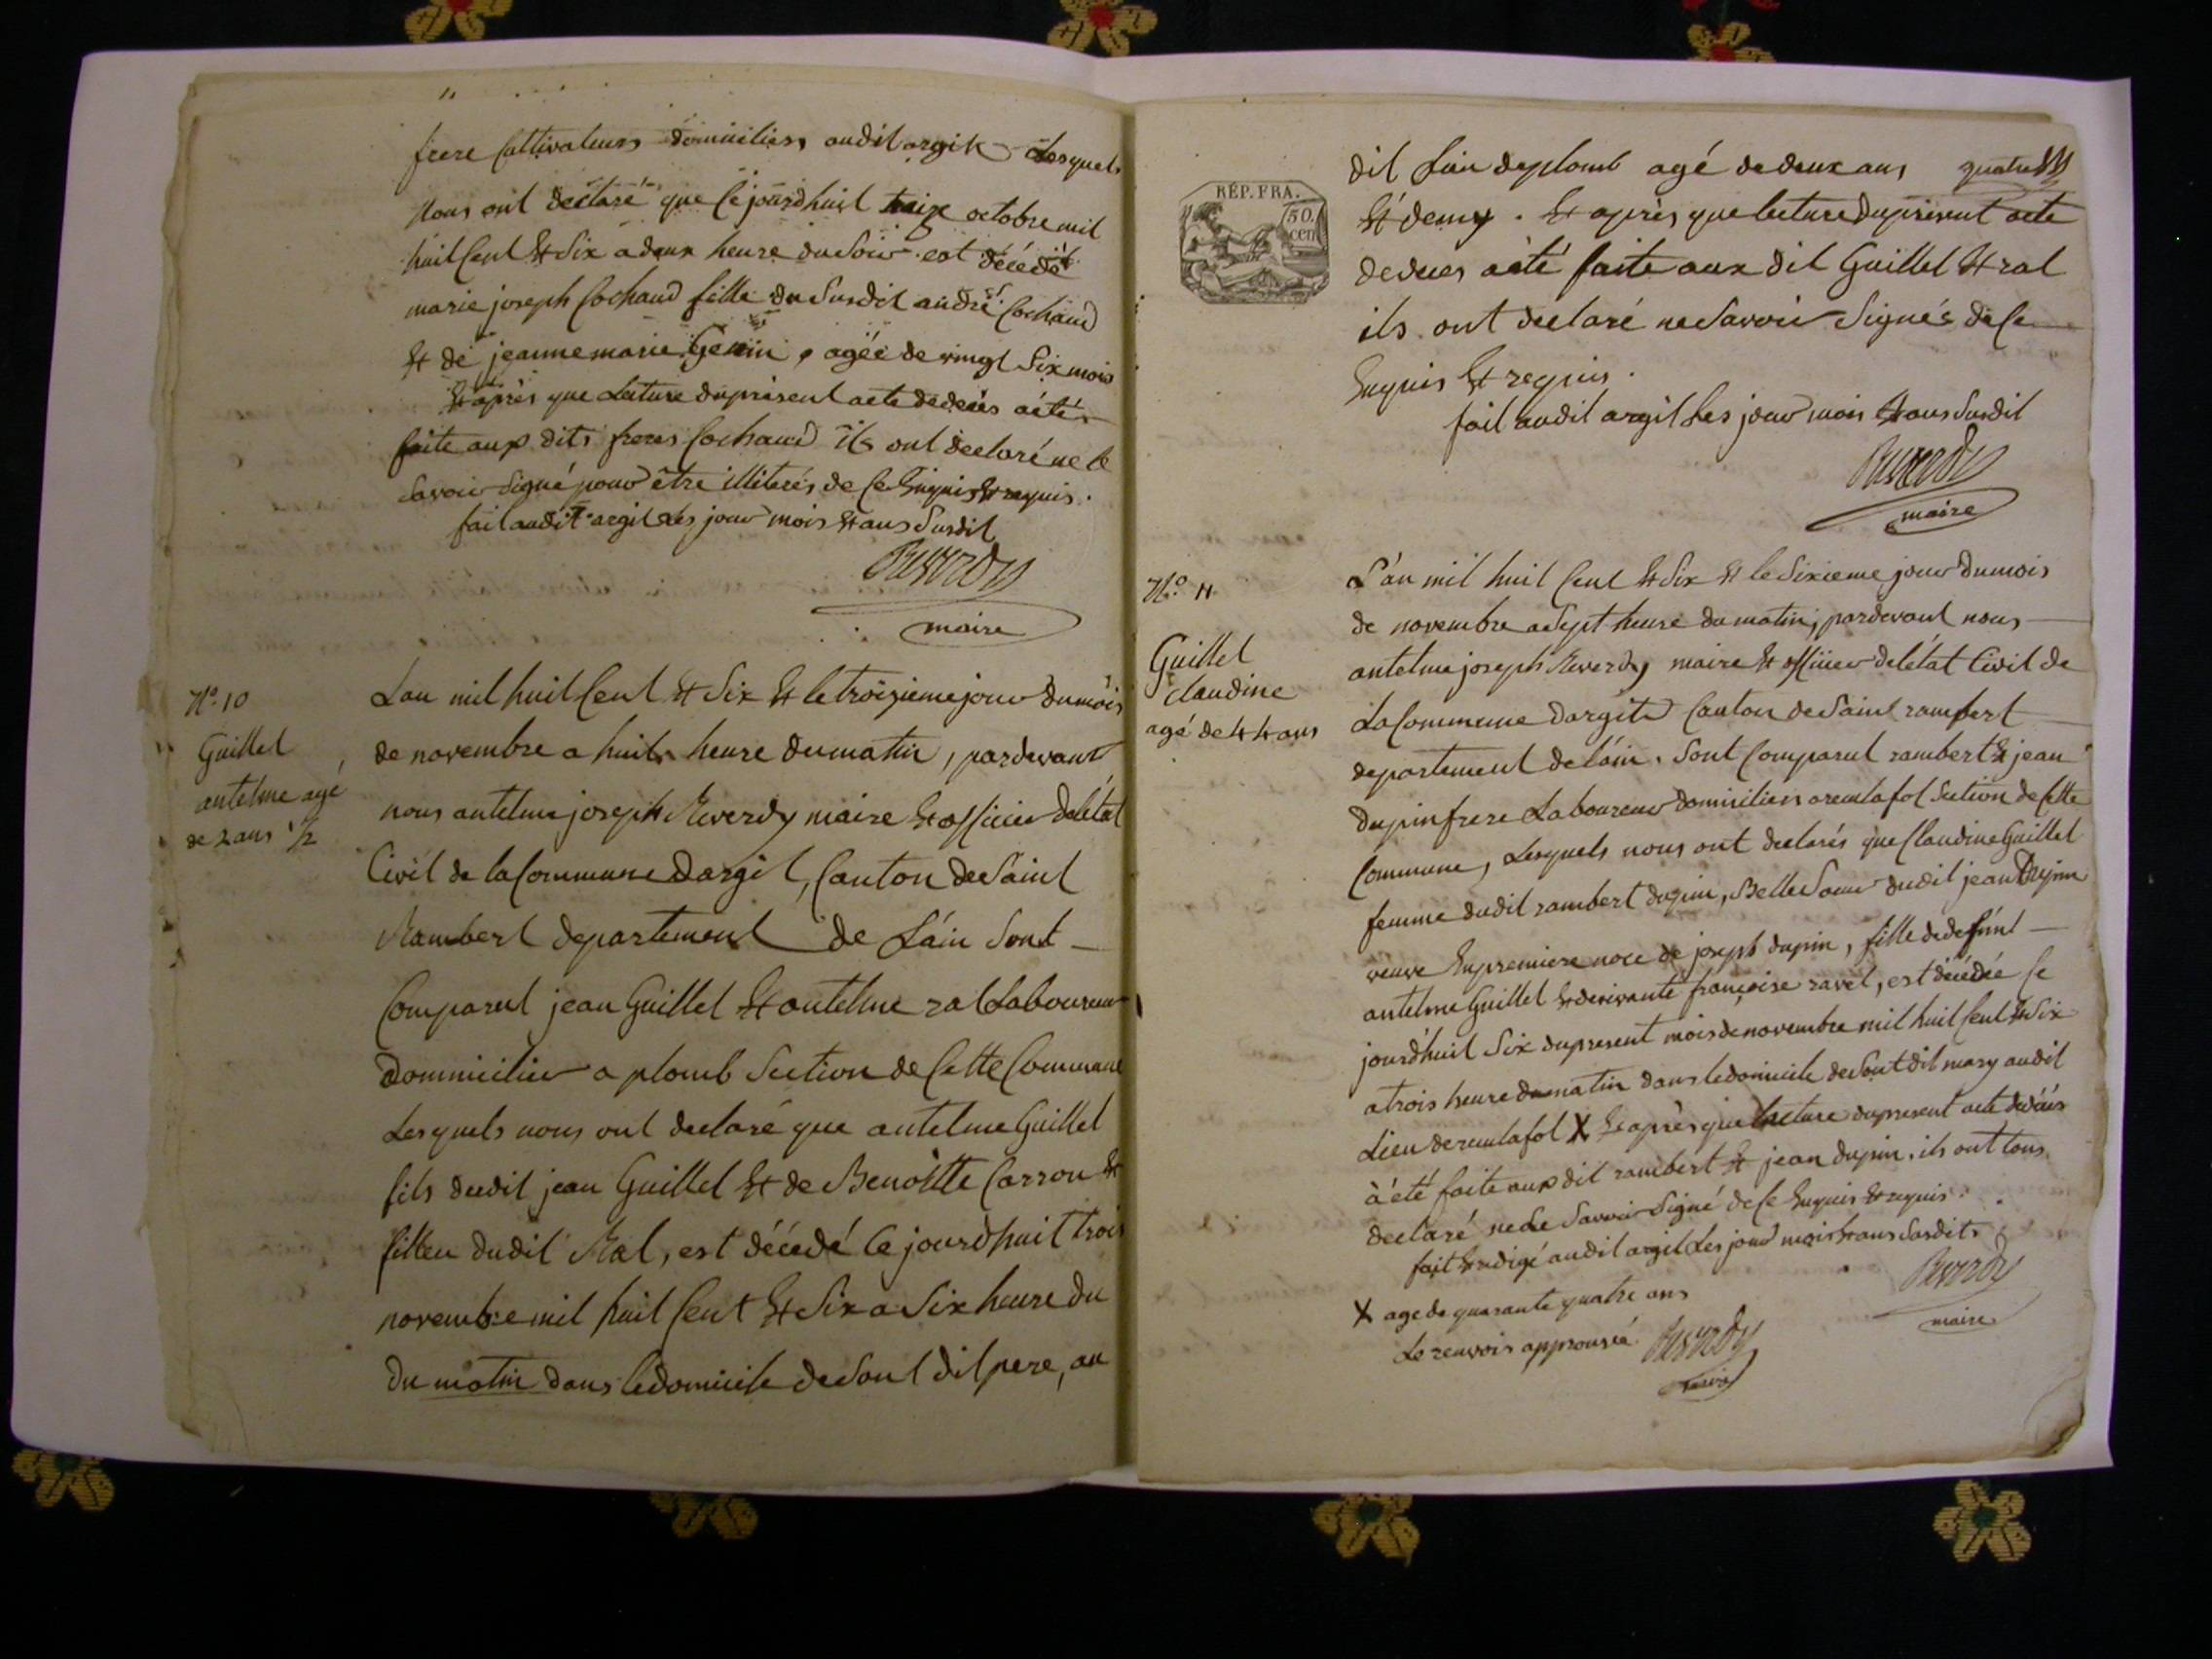 frere Cultivateurs domiciliers audit argit Lesquels
Nous ont declaré que Cejourdhuit treize octobre mil
huit Cent & Six a deux heure du Soir est décédé
marie joseph Cochaud fille du Susdit andré Cochaud
& de jeanne marie Genin, agée de vingt Six mois
& après que Lecture du présent acte de décés a été
faite aux dits freres Cochaud ils ont declaré ne le
Savoir Signé pour être illiterés de Ce Enquis & requis.
fait audit argit Les jour mois & ans Susdit
Reverdy
maire
N.o 10
Guillet
antelme agé
de 2 ans 1/2
L'an mil huit Cent & Six & le troisieme jour du mois
de novembre a huit heure du matin, pardevant
nous antelme joseph Reverdy maire & officier de létat
Civil de la Commune Dargit, Canton de Saint
Rambert departement de L'ain Sont
Comparut jean Guillet & antelme ral Laboureur
Dommicilier a plomb Section de Cette Commune
Lesquels nous ont declaré que antelme Guillet
fils dudit jean Guillet & de Benoitte Carron &
filleu dudit Ral, est décedé Ce jourdhuit trois
novembre mil huit Cent & Six a Six heure du
du matin dans le domicile de Sont dit pere, au
RÉP. FRA.
50
cen
dit Lieu de plomb agé de deux ans
& demy. & après que lecture du présent acte
de deces a été faite aux dit Guillet & ral
ils ont declaré ne Savoir Signés de Ce
Enquis & requis.
fait audit argit Les jour mois & ans Susdit
Reverdy
maire
N.o 11
Guillet
claudine
agé de 44 ans
L'an mil huit Cent & Six & le Sixieme jour du mois
de novembre a Sept heure du matin, pardevant nous
antelme joseph Reverdy maire & officier de létat Civil de
La Commune Dargit Canton de Saint rambert
departement de láin. Sont Comparut rambert & jean
dupin frere Laboureur domicilier a remlafol Section de Cette
Commune, Lesquels nous ont declarés que Claudine Guillet
femme dudit rambert dupin, Belle Soeur dudit jean Dupin
veuve En premiere noce de joseph dupin, fille de defunt
antelme Guillet & de vivante françoise ravet, est décédée Ce
jourdhuit Six du present mois de novembre mil huit Cent & Six
a trois heure du matin dans le domicile de Sont dit mary audit
Lieu de remlafol X & après que lecture du present acte de décés
à été faite aux dit rambert & jean dupin. ils ont tous
declaré ne Le Savoir Signé de Ce Enquis & requis.
fait & redigé audit argit Les jour mois & ans Susdits
Reverdy
maire
X age de quarante quatre ans
Le renvois approuvée Reverdy
maire